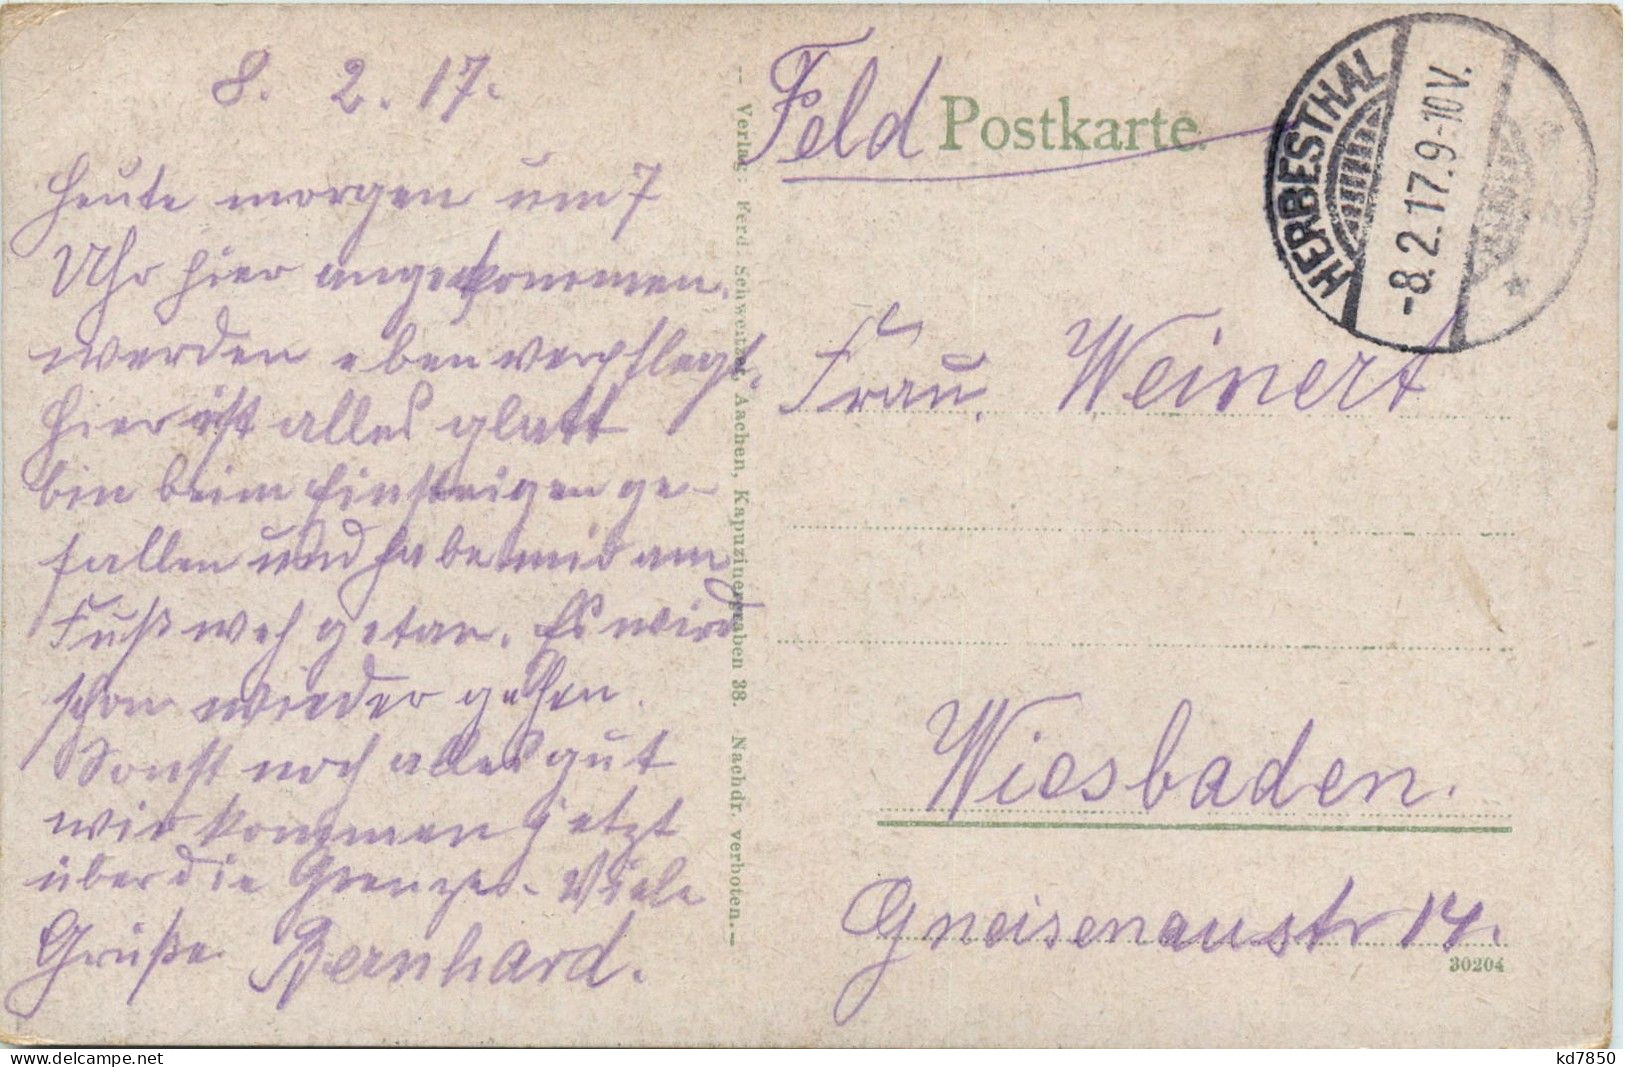 8. 2. 17.
Heute morgen um 7
Uhr hier angekommen.
werden eben verpflegt.
Hier ist alles glatt
bin beim Einsteigen ge-
fallen und habe mir am
Fuß weh getan. Es wird
schon wieder gehen.
Sonst noch alles gut
wir kommen jetzt
über die Grenze. Viele
Grüße. Bernhard.
-- Verlag: Ferd. Schweitzer, Aachen, Kapuzinergraben 38. Nachdr. verboten. --
Feld Postkarte.
HERBESTHAL
-8.2.17.9-10V.
*
Frau. Weinert
Wiesbaden.
Gneisenaustr 14.
30204
delcampe.net
kd7850